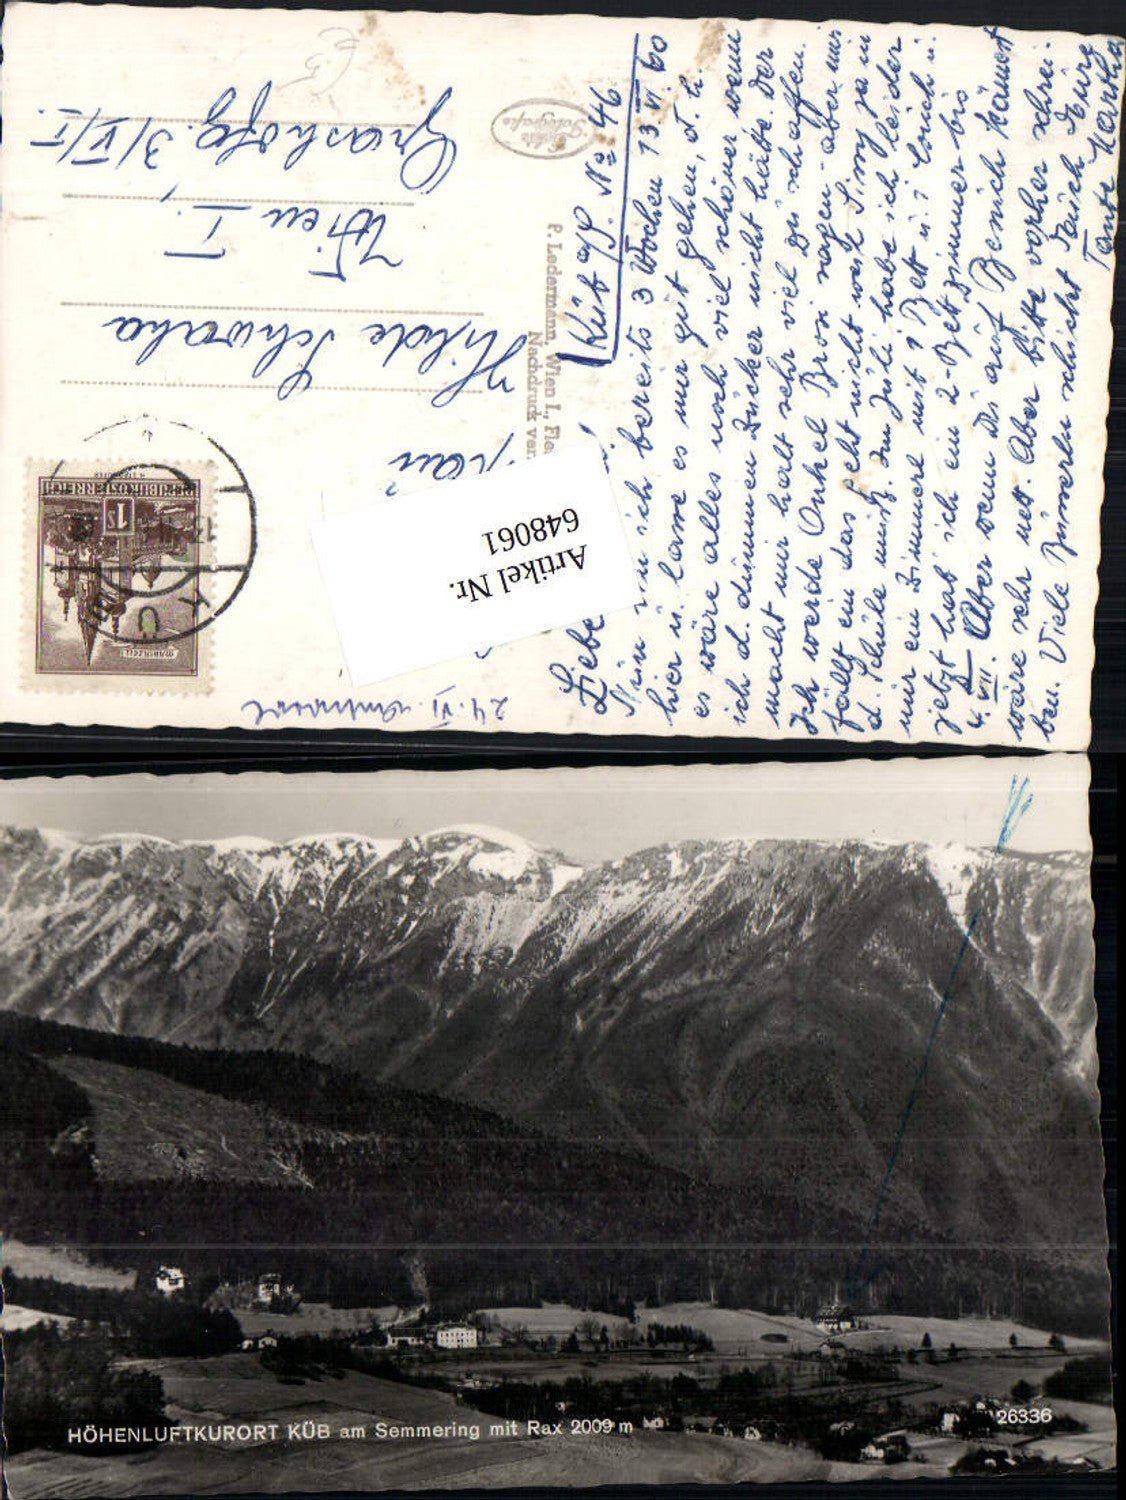 Küb a/S. No 46
13. VI. 60
Liebe
Nun bin ich bereits 3 Wochen
hier u. lasse es mir gut gehen, d. h.
es wäre alles noch viel schöner wenn
ich d. dummen Zucker nicht hätte. Der
macht mir halt sehr viel zu schaffen.
Ich werde Onkel Bron sagen – aber mir
fällt ein das geht nicht weil Susy ja in
d. Schule muß. Im Juli habe ich leider
nur ein Zimmerl mit 1 Bett u. 1 Couch u.
jetzt hab ich ein 2-Bett Zimmer bis
4. VII. Aber wenn Du auf Besuch kämest
wäre sehr nett. Aber bitte vorher schrei-
ben. Viele Busserln schickt Euch Eure
Tante Martha
24. VI.
Hilde Schwarha
Wien I.,
3/VI/5.
P. Ledermann, Wien I.,
Nachdruck ver
Echte
Fotografie
REPUBLIK ÖSTERREICH
1S
MARIAZELL
KÜ
Artikel Nr.
648061
HÖHENLUFTKURORT KÜB am Semmering mit Rax 2009 m
26336